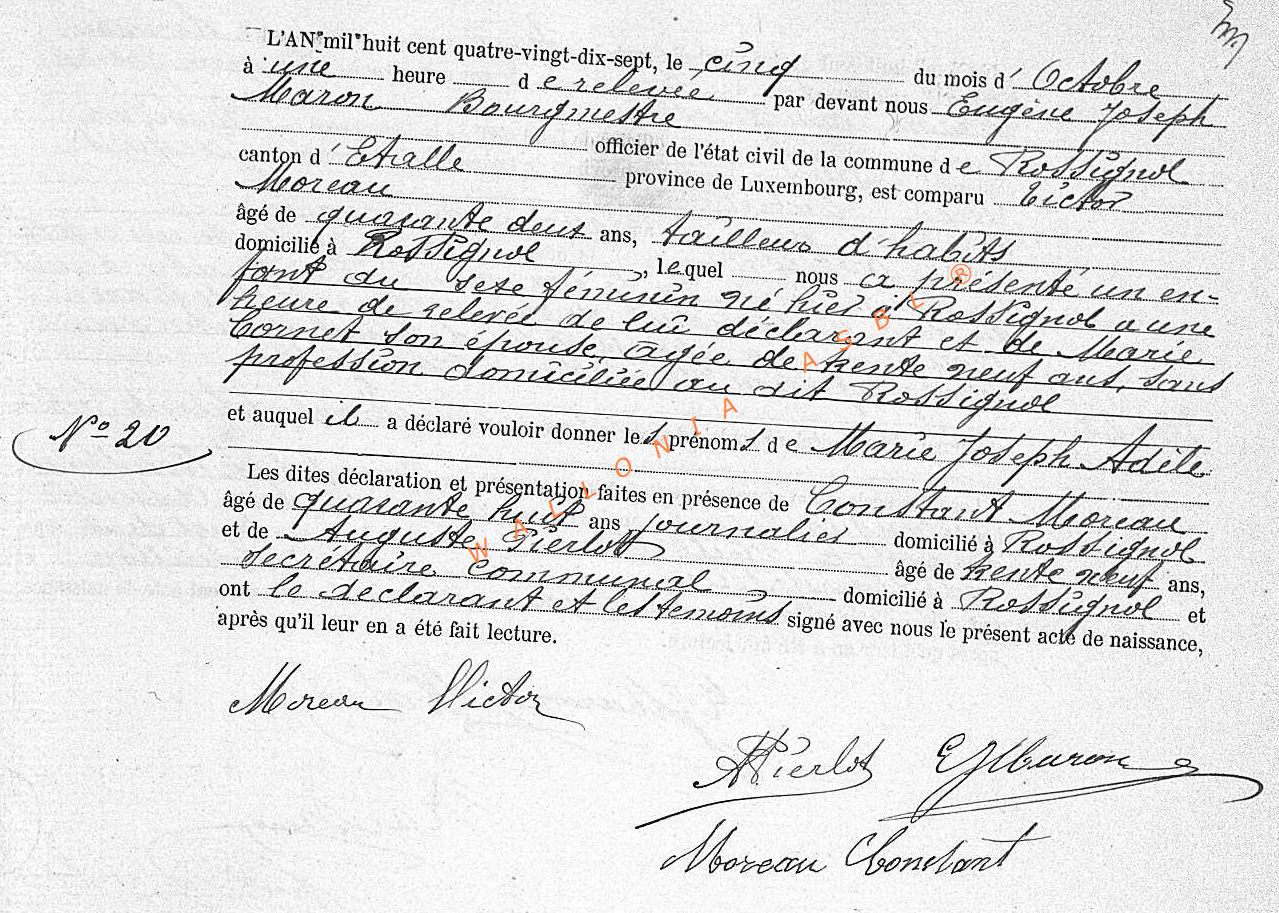 L'AN mil huit cent quatre-vingt-dix-sept, le cinq du mois d' Octobre
à une heure de relevée par devant nous Eugène Joseph
Maron Bourgmestre
officier de l'état civil de la commune de Rossignol
canton d' Etalle province de Luxembourg, est comparu Victor
Moreau
âgé de quarante deux ans, tailleur d'habits
domicilié à Rossignol, lequel nous a présenté un en-
fant du sexe féminin né hier à Rossignol a une
heure de relevée de lui déclarant et de Marie
Cornet son épouse, agée de trente neuf ans, sans
profession domiciliée au dit Rossignol
et auquel il a déclaré vouloir donner les prénoms de Marie Joseph Adèle
N° 20
Les dites déclaration et présentation faites en présence de Constant Moreau
âgé de quarante huit ans journalier domicilié à Rossignol
et de Auguste Pierlot âgé de trente neuf ans,
secrétaire communal domicilié à Rossignol et
ont le déclarant et les temoins signé avec nous le présent acte de naissance,
après qu'il leur en a été fait lecture.
Moreau Victor
APierlot EJMaron
Moreau Constant
WALLONIA ASBL ®